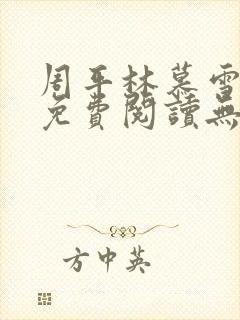 周平林慕雪
免費閱讀無
方中英